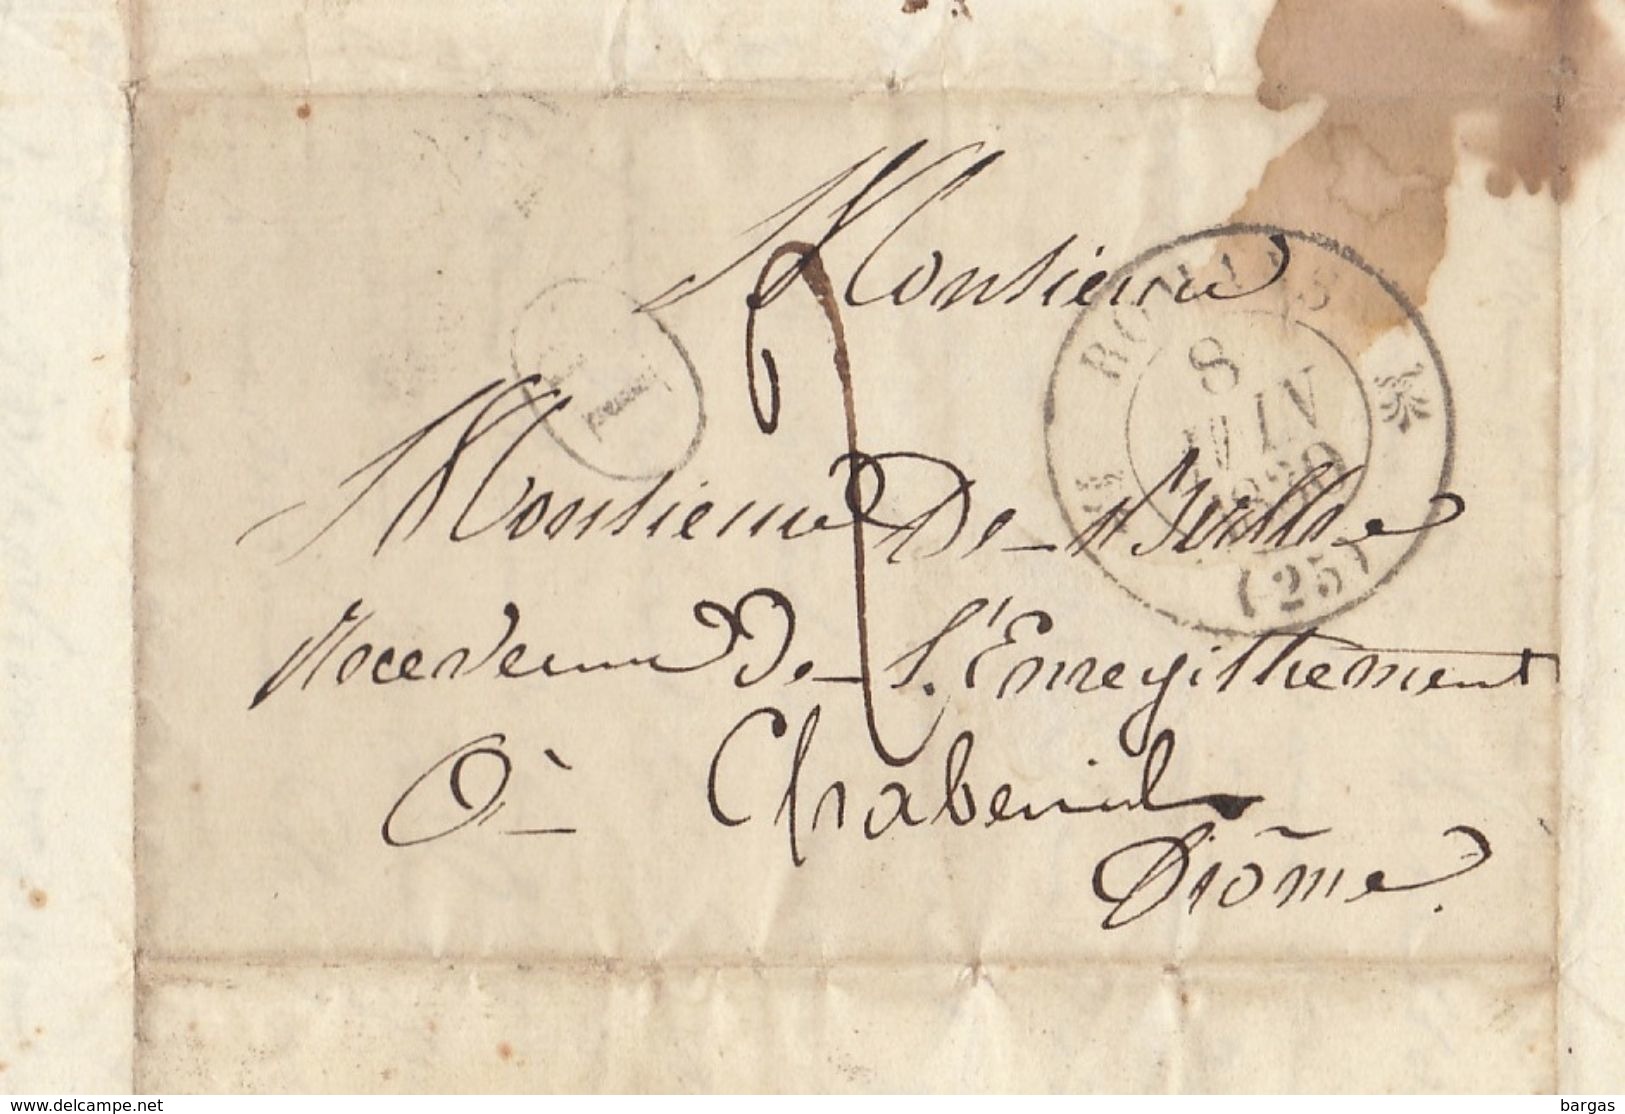 Monsieur
ROMANS
8
JUIN
1839
(25)
1
2
Monsieur De
Receveur De L'Enregistrement
à Chabeuil
Drôme.
www.delcampe.net
bargas